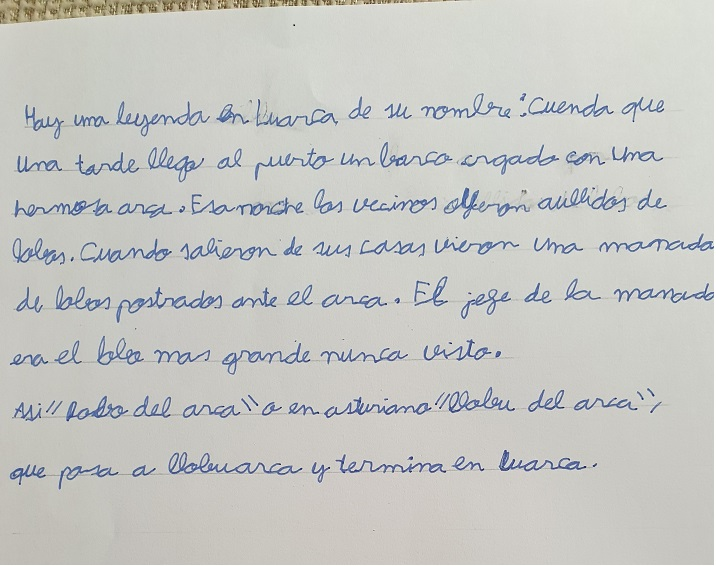 Hay una leyenda en Luarca de su nombre: Cuenda que
una tarde llego al puerto un barco cngado con una
hermosa arca. Esa noche los vecinos olleron aullidos de
lobos. Cuando salieron de sus casas vieron una mamada
de lobos postrados ante el arca. El jefe de la manada
era el lobo mas grande nunca visto.
Asi "Lobo del arca" o en asturiano "Llobu del arca",
que pasa a Llobuarca y termina en Luarca.